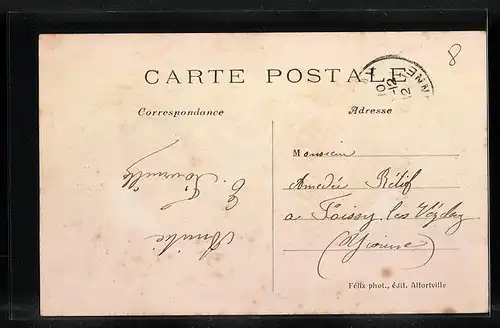 8
CARTE POSTALE
Correspondance
Adresse
Monsieur
Amedée Rétif
a Foissy les Vézelay
(Yonne)
Amitié
Félix phot., édit. Alfortville